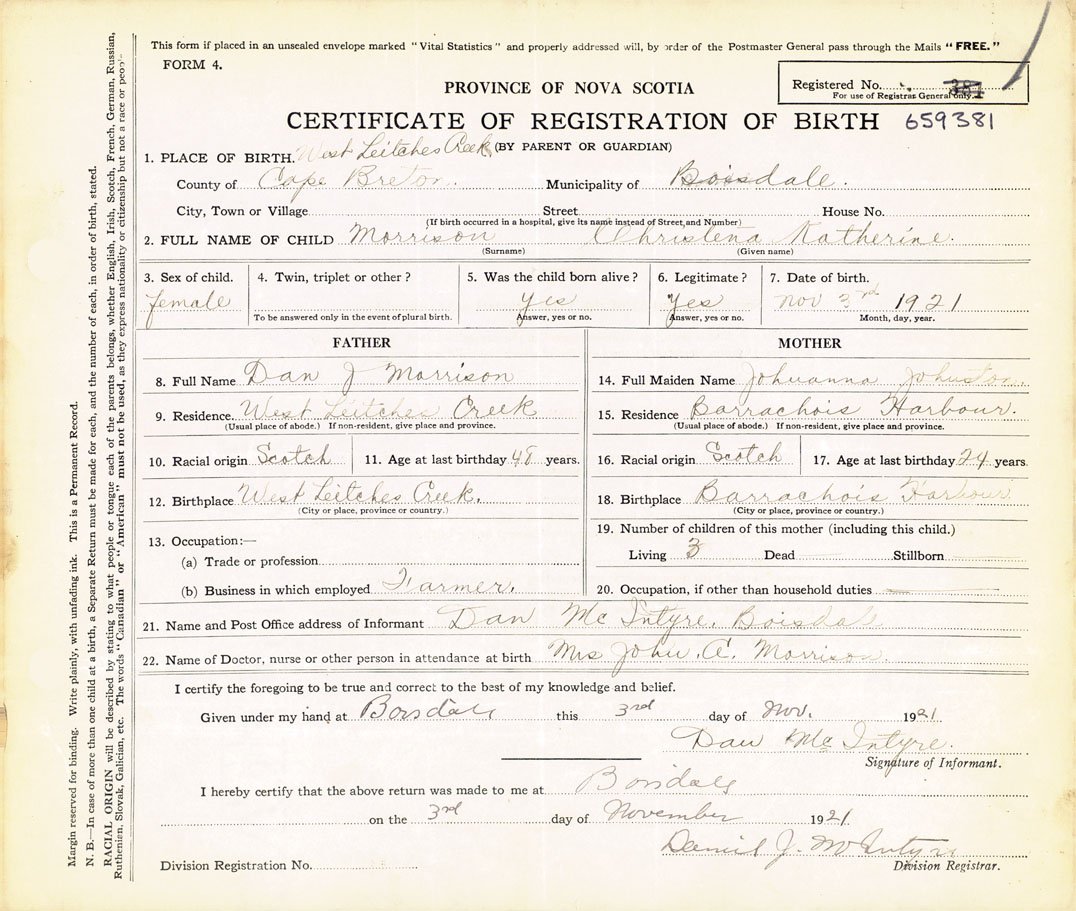 This form if placed in an unsealed envelope marked "Vital Statistics" and properly addressed will, by order of the Postmaster General pass through the Mails "FREE."
FORM 4.
Registered No.
For use of Registrar General only.
PROVINCE OF NOVA SCOTIA
CERTIFICATE OF REGISTRATION OF BIRTH 659381
1. PLACE OF BIRTH. West Leitches Creek (BY PARENT OR GUARDIAN)
County of Cape Breton. Municipality of Boisdale.
City, Town or Village Street House No.
(If birth occurred in a hospital, give its name instead of Street, and Number)
2. FULL NAME OF CHILD Morrison Christena Katherine.
(Surname) (Given name)
3. Sex of child. 4. Twin, triplet or other? 5. Was the child born alive? 6. Legitimate? 7. Date of birth.
female yes Yes Nov 3rd 1921
To be answered only in the event of plural birth. Answer, yes or no. Answer, yes or no. Month, day, year.
FATHER
8. Full Name Dan J Morrison
9. Residence. West Leitches Creek
(Usual place of abode.) If non-resident, give place and province.
10. Racial origin Scotch 11. Age at last birthday 48 years.
12. Birthplace West Leitches Creek.
(City or place, province or country.)
13. Occupation:—
(a) Trade or profession
(b) Business in which employed Farmer.
MOTHER
14. Full Maiden Name Johuanna Johnston.
15. Residence Barrachois Harbour.
(Usual place of abode.) If non-resident, give place and province.
16. Racial origin Scotch 17. Age at last birthday 24 years.
18. Birthplace Barrachois Harbour
(City or place, province or country.)
19. Number of children of this mother (including this child.)
Living 3 Dead Stillborn
20. Occupation, if other than household duties
21. Name and Post Office address of Informant Dan McIntyre. Boisdale
22. Name of Doctor, nurse or other person in attendance at birth Mrs John A. Morrison.
I certify the foregoing to be true and correct to the best of my knowledge and belief.
Given under my hand at Boisdale this 3rd day of Nov. 1921
Dan McIntyre.
Signature of Informant.
I hereby certify that the above return was made to me at Boisdale
on the 3rd day of November 1921
Daniel J. McIntyre
Division Registration No. Division Registrar.
Margin reserved for binding. Write plainly, with unfading ink. This is a Permanent Record.
N. B.—In case of more than one child at a birth, a Separate Return must be made for each, and the number of each, in order of birth, stated.
RACIAL ORIGIN will be described by stating to what people or tongue each of the parents belongs, whether English, Irish, Scotch, French, German, Russian,
Ruthenian, Slovak, Galician, etc. The words "Canadian" or "American" must not be used, as they express nationality or citizenship but not a race or people